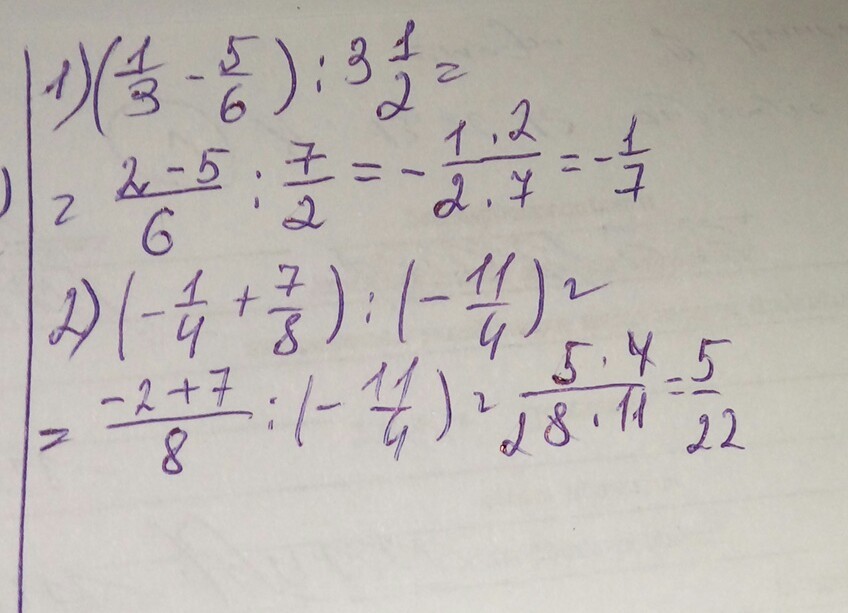 1) (1/3 - 5/6) : 3 1/2 =
= (2 - 5)/6 : 7/2 = - (1 . 2)/(2 . 7) = - 1/7
2) (- 1/4 + 7/8) : (- 11/4) =
= (-2 + 7)/8 : (- 11/4) = (5 . 4)/(2 8 . 11) = 5/22